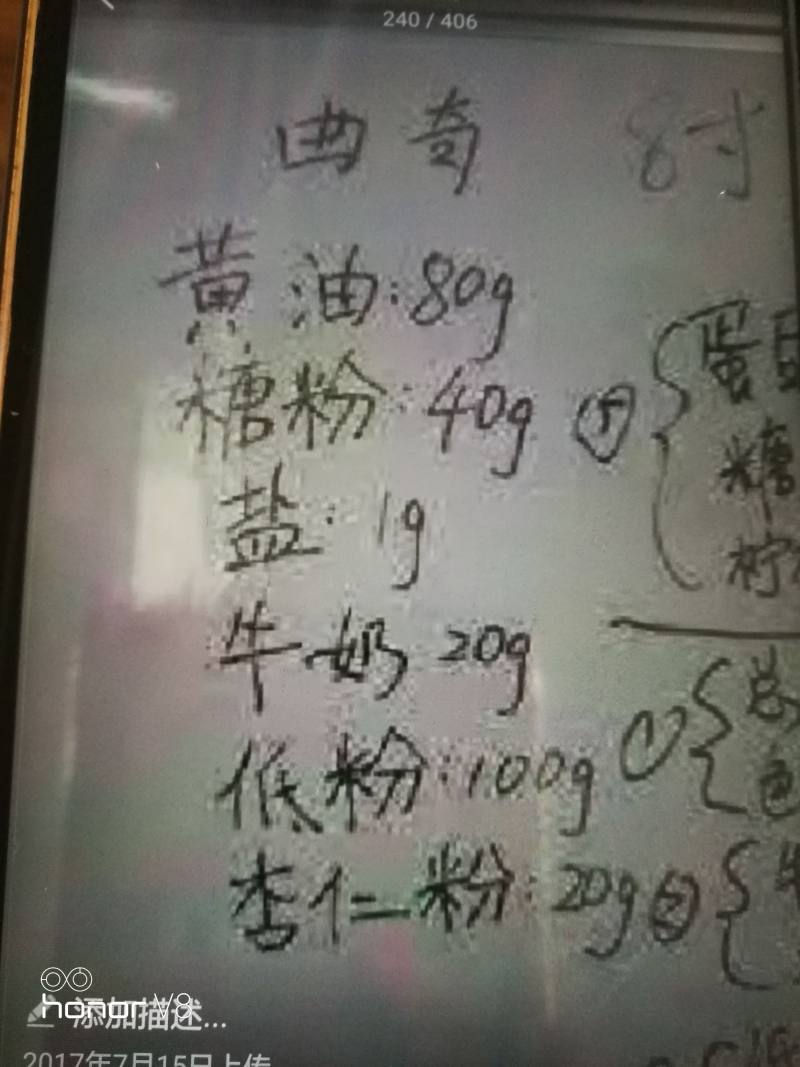 240 / 406
曲奇 8寸
黄油:80g
糖粉:40g
盐:1g
牛奶 20g
低粉:100g
杏仁粉:20g
蛋
糖
柠
①
②
honor V8
添加描述...
2017年7月15日上传